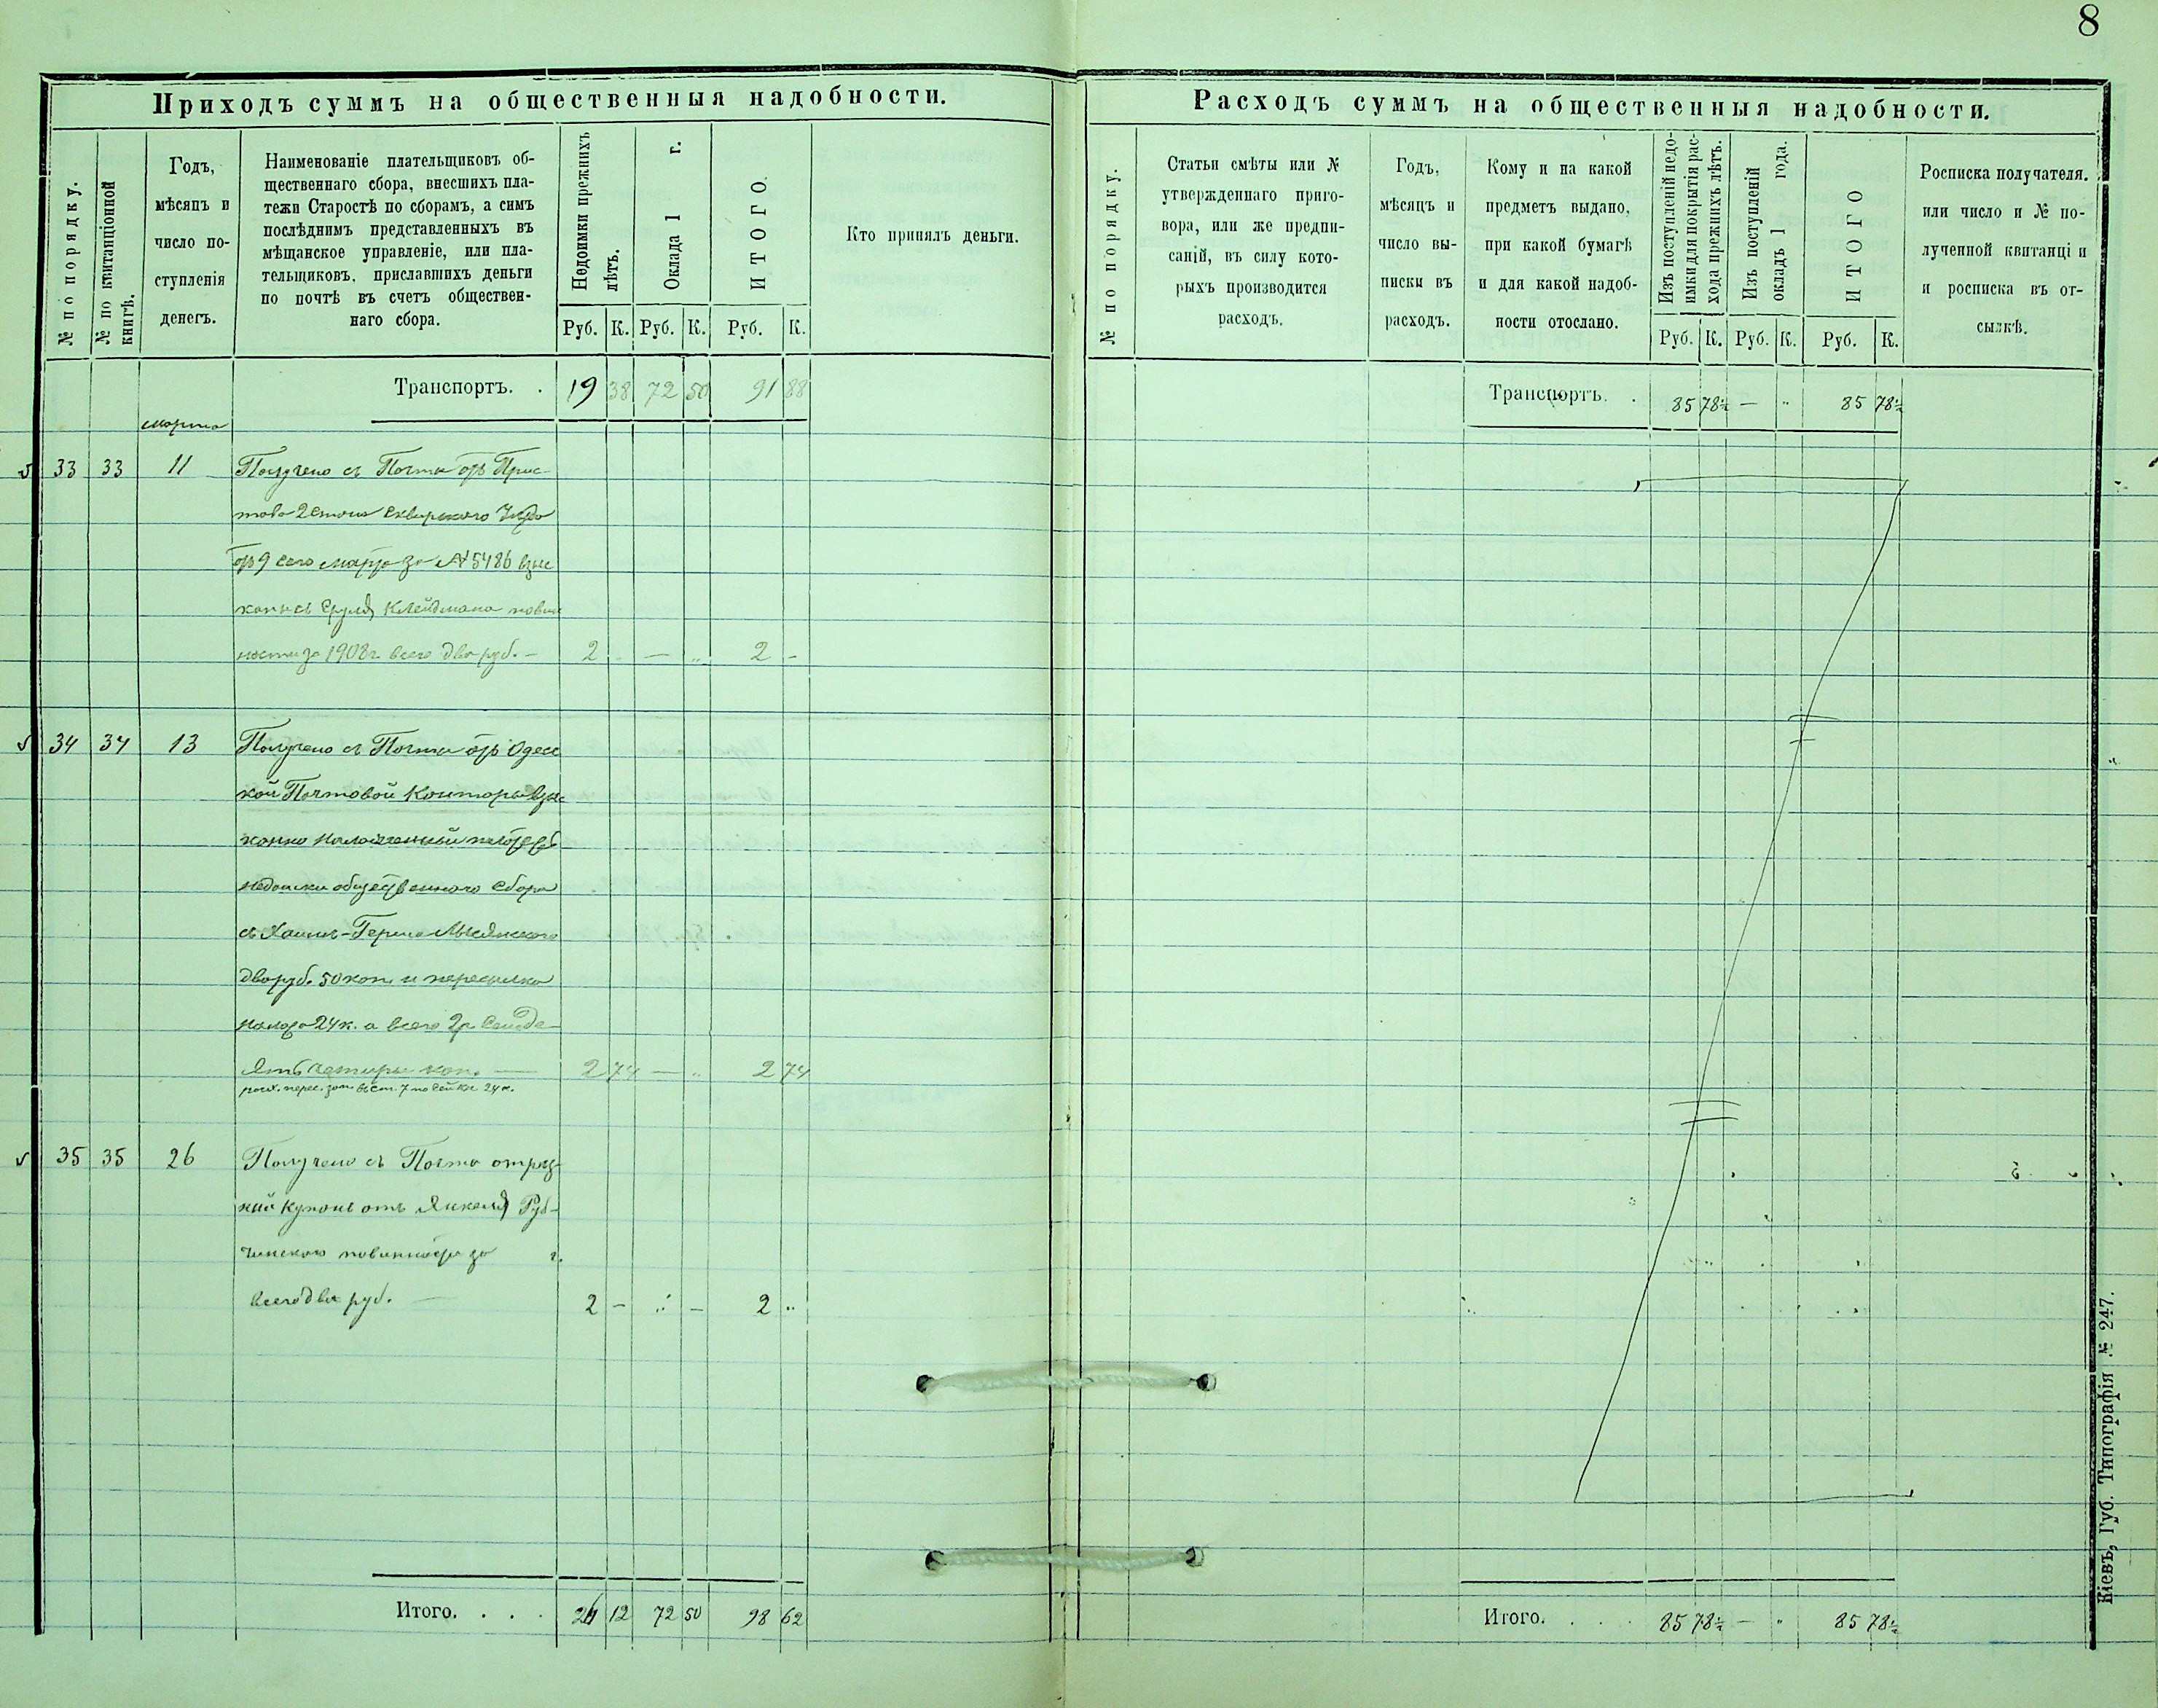 8
Приходъ суммъ на общественныя надобности.
№ по порядку.
№ по квитанціонной
книгѣ.
Годъ,
мѣсяцъ и
число по-
ступленія
денегъ.
Наименованіе плательщиковъ об-
щественнаго сбора, внесшихъ пла-
тежи Старостѣ по сборамъ, а симъ
послѣднимъ представленныхъ въ
мѣщанское управленіе, или пла-
тельщиковъ, приславшихъ деньги
по почтѣ въ счетъ обществен-
наго сбора.
Недоимки прежнихъ
лѣтъ.
Оклада 1 г.
ИТОГО.
Руб. К. Руб. К. Руб. К.
Кто принялъ деньги.
Транспортъ. . 19 38 72 50 91 88
марта
33 33 11 Получено съ Почты отъ Прис-
това 2 стана Сквирского Уезда
отъ 9 сего марта за № 5486 взыс
канныхъ Клейдмана повин
ности за 1908 г. всего два руб. — 2 - — „ 2 -
34 34 13 Получено съ Почты отъ Одесс
кой Почтовой Конторы взыс
канно наложенный
недоимки общественного сбора
съ
два руб. 50 коп. и пересылка
24 к. а всего 2 р. семьде-
ять четыре коп. — 2 74 — „ 2 74
35 35 26 Получено съ Почты отрез-
ний купонъ отъ Янкеля Руб-
чинского повинности за г.
всего два руб. — 2 - „ - 2 „
Итого. . . . 26 12 72 50 98 62
Расходъ суммъ на общественныя надобности.
№ по порядку.
Статьи смѣты или №
утвержденнаго приго-
вора, или же предпи-
саній, въ силу кото-
рыхъ производится
расходъ.
Годъ,
мѣсяцъ и
число вы-
писки въ
расходъ.
Кому и на какой
предметъ выдано,
при какой бумагѣ
и для какой надоб-
ности отослано.
Изъ поступленій недо-
имки для покрытія рас-
хода прежнихъ лѣтъ.
Изъ поступленій
окладъ 1 года.
ИТОГО
Руб. К. Руб. К. Руб. К.
Росписка получателя.
или число и № по-
лученной квитанці и
и росписка въ от-
сылкѣ.
Транспортъ. . 85 78½ — „ 85 78½
Итого. . . . 85 78½ — „ 85 78½
Кіевъ, Губ. Типографія № 247.